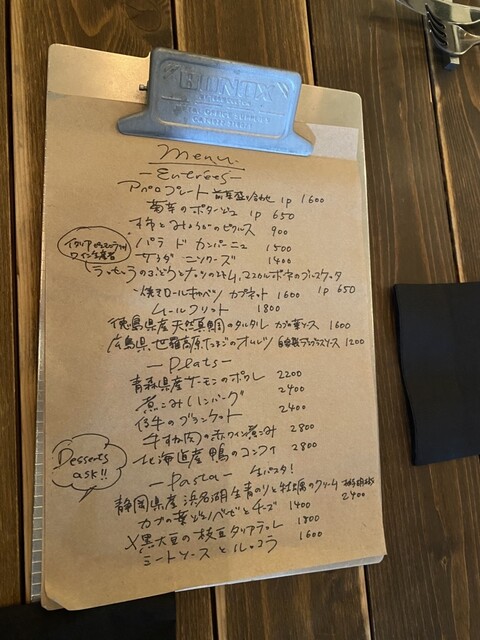 BONTX
Menu.
-Entrées-
アペロプレート 前菜盛り合わせ 1P 1600
菊芋のポタージュ 1P 650
柿とみょうがのピクルス 900
パテ ド カンパーニュ 1500
サラダ ニソワーズ 1400
のブルスケッタ
1P 650
焼きロールキャベツ カプネット 1600
ムールフリット 1800
徳島県産天然真鯛のタルタル カブの葉ソース 1600
広島県世羅高原たまごのオムレツ 自家製デミグラスソース 1200
-Plats-
青森県産サーモンのポワレ 2200
煮こみハンバーグ 2400
仔牛のブランケット 2400
牛すね肉の赤ワイン煮こみ 2800
北海道産鴨のコンフィ 2800
Desserts
ask!!
-Pasta- 生パスタ!
静岡県産浜名湖生青のりと牡蠣のクリーム 2400
カブの葉ジェノベーゼとチーズ 1400
黒大豆の枝豆タリアテッレ 1800
ミートソースとルッコラ 1600